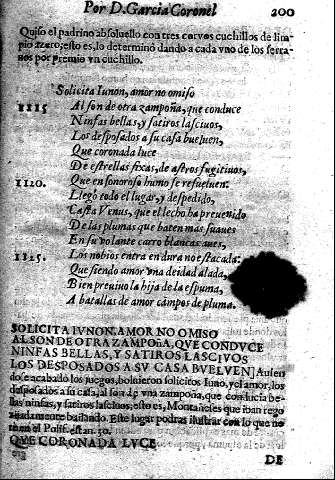 Por D. Garcia Coronel 200
Quiso el padrino absoluello con tres corvos cuchillos de lim-
pio azero; esto es, lo determinó dando a cada vno de los serra-
nos por premio vn cuchillo.
Solicita Iunon, amor no omiso
1115 Al son de otra zampoña, que conduce
Ninfas bellas, y satiros lasciuos,
Los desposados a su casa bueluen,
Que coronada luce
De estrellas fixas, de astros fugitiuos,
1120. Que en sonoroso humo se resueluen.
Llegò todo el lugar, y despedido,
Casta Venus, que el lecho ha preuenido
De las plumas que baten mas suaues
En su volante carro blancas aues,
1125. Los nobios entra en dura no estacada:
Que siendo amor vna deidad alada,
Bien preuino la hija de la espuma,
A batallas de amor cãmpos de pluma.
SOLICITA IVNON, AMOR NO OMISO
AL SON DE OTRA ZAMPOÑA, QVE CONDVCE
NINFAS BELLAS, Y SATIROS LASCIVOS
LOS DESPOSADOS A SV CASA BVELVEN] Auien
do acabado los juegos, boluieron solicitos Iuno, y el amor, los
desposados a su casa, al son de vna zampoña, que conducia be-
llas ninfas, y satiros lasciuos; esto es, Montañeses que iban rego
zijadamente bailando. Este lugar podras ilustrar con lo que no
tran el Polif. estan. 50.
QVE CORONADA LVCE
DE